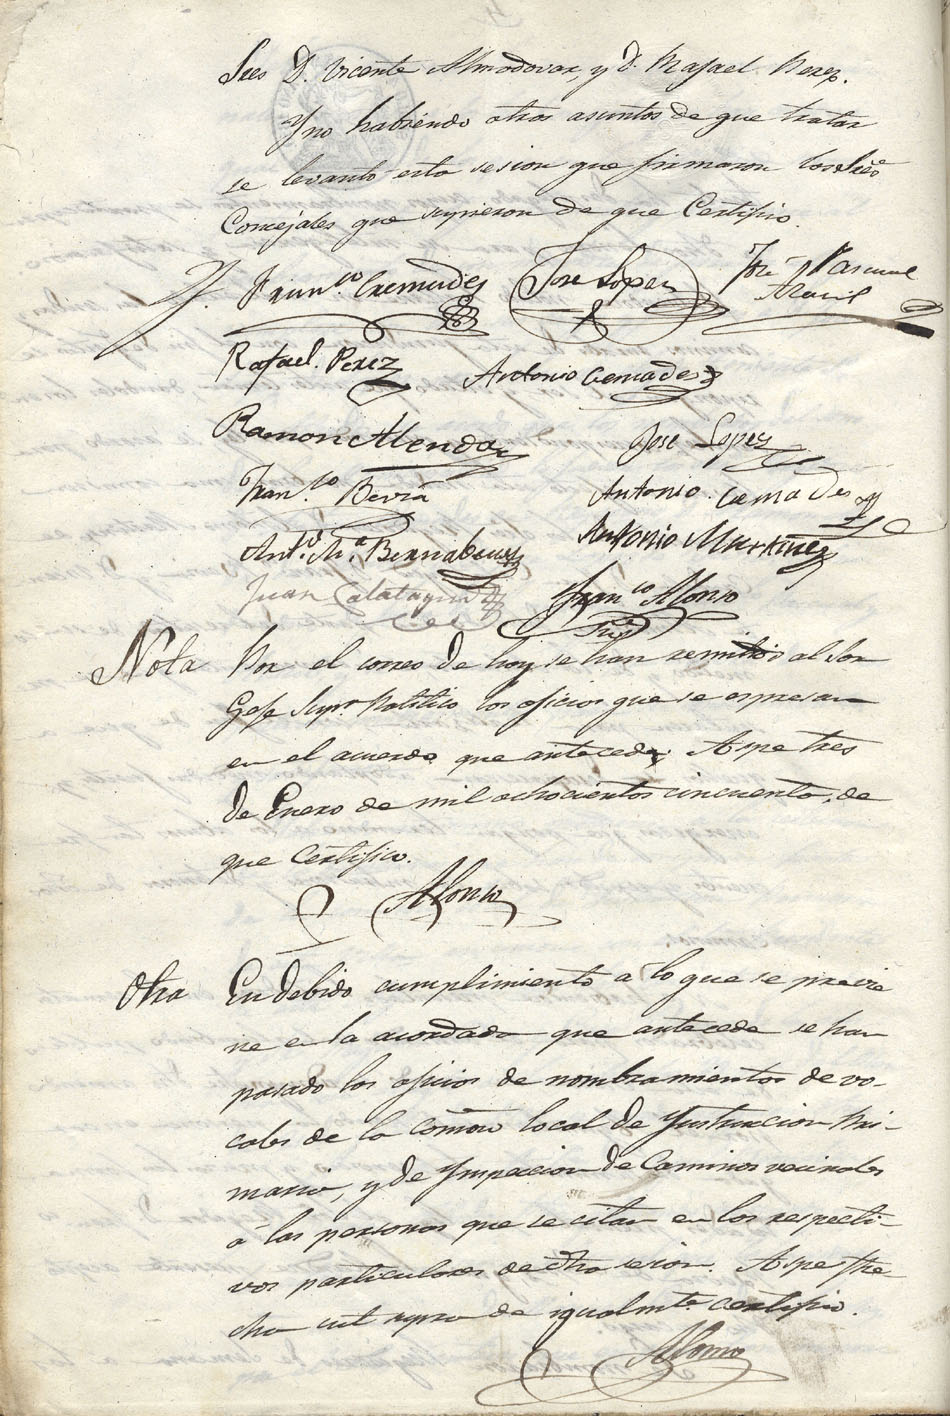 Sres D. Vicente Almodovar, y D. Rafael Perez.
Y no habiendo otros asuntos de que tratar
se levantó esta sesion que firmaron los Sres
Concejales que supieron de que Certifico.
Fran.co Cremades
Jose Lopez
Jose Pascual
Rafael. Perez
Antonio Cemades
Ramon Alenda
Jose Lopez
Fran.co Beviá
Antonio. Cemades
Ant.o M.a Bernabeu
Antonio Martinez
Juan Calatayud
Fran.co Alonso
Srio
Nota Por el correo de hoy se han remitido al Sor
Gefe Supr. Politico los oficios que se espresan
en el acuerdo que antecede; Aspe tres
de Enero de mil ochocientos cincuenta, de
que Certifico.
Alonso
Otra En debido cumplimiento a lo que se previe
ne en la acordado que antecede se han
pasado los oficios de nombramientos de vo-
cales de la Comon local de Ystruccion Pri-
maria, y de Ynspeccion de Caminos vecinales
á las personas que se citan en los respecti-
vos particulares de dha sesion. Aspe fe-
cha ut supra de igualmte certifico.
Alonso